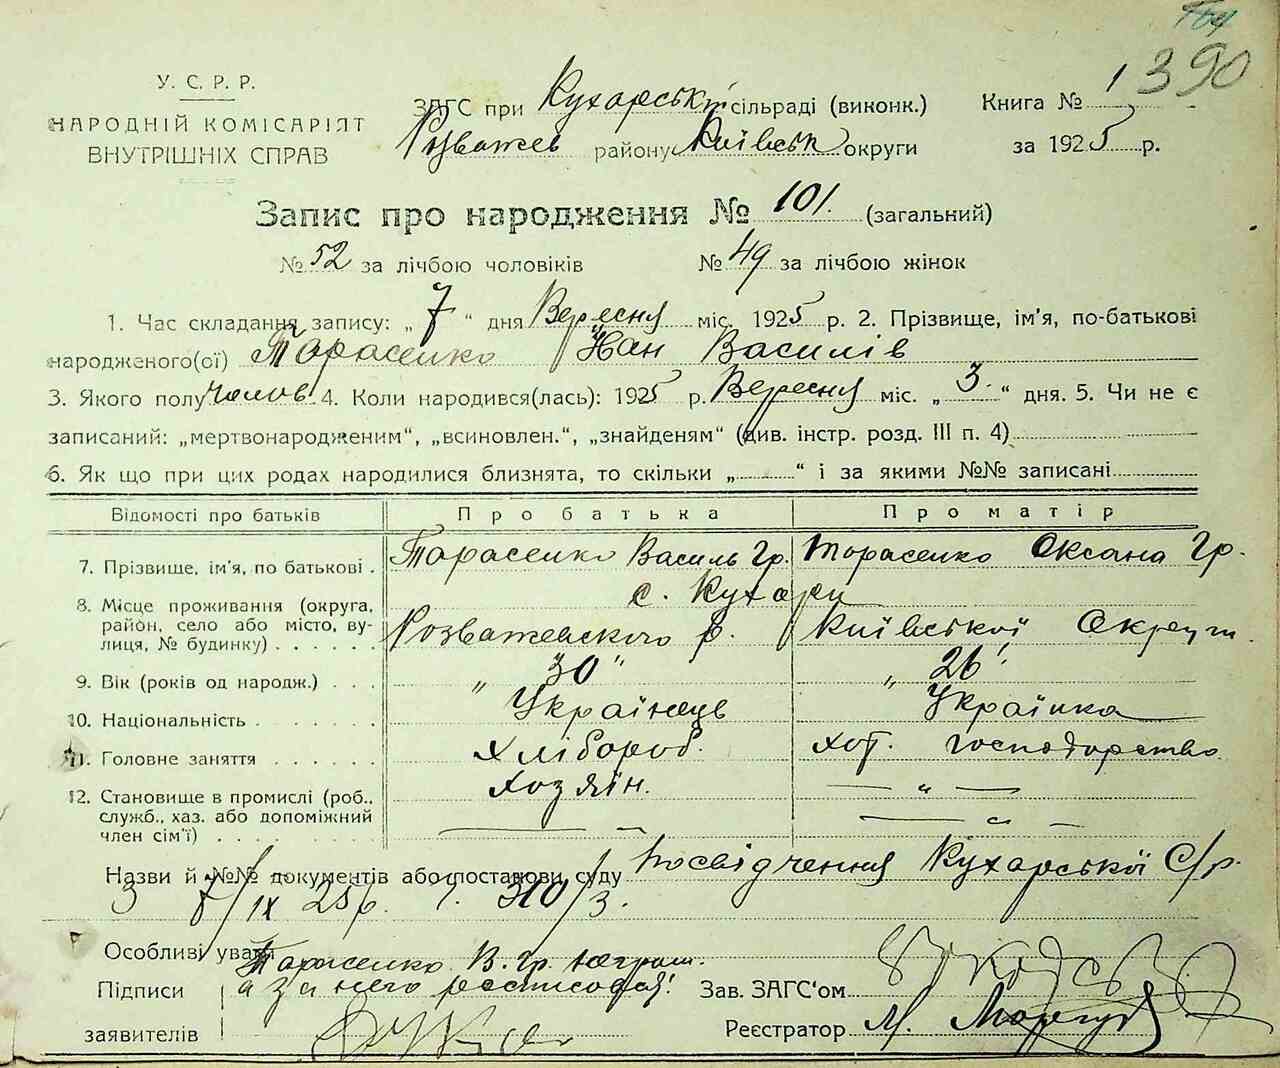 390
У. С. Р. Р.
НАРОДНІЙ КОМІСАРІЯТ
ВНУТРІШНІХ СПРАВ
ЗАГС при Кухарській сільраді (виконк.) Книга № 1
Розважев району Київськ округи за 1925 р.
Запис про народження № 101. (загальний)
№ 52 за лічбою чоловіків № 49 за лічбою жінок
1. Час складання запису: „ 7 “ дня Вересня міс. 1925 р. 2. Прізвище, ім'я, по-батькові
народженого(ої) Тарасенко Іван Василів
3. Якого полу челов. 4. Коли народився(лась): 1925 р. Вересня міс. „ 3. “ дня. 5. Чи не є
записаний: „мертвонародженим“, „всиновлен.“, „знайденям“ (див. інстр. розд. III п. 4)
6. Як що при цих родах народилися близнята, то скільки „ “ і за якими №№ записані
Відомості про батьків Про батька Про матір
7. Прізвище, ім'я, по батькові . Тарасенко Василь Гр. Тарасенко Оксана Гр.
с. Кухари
8. Місце проживання (округа, район, село або місто, вулиця, № будинку) Розважевского р. Київської Округи.
9. Вік (років од народж.) . . . „ 30 “ „ 26 “
10. Національність Українець Українка
11. Головне заняття Хлібороб. хот. господарство
12. Становище в промислі (роб., служб., хаз. або допоміжний член сім'ї) Хозяїн. — „ —
Назви й №№ документів або постанови суду Посвідчення Кухарської С/р.
З 7/IX 25р. 310/3.
Особливі уваги Тарасенко В. Гр.
Підписи а за него росписов Зав. ЗАГС'ом
заявителів Реєстратор М.